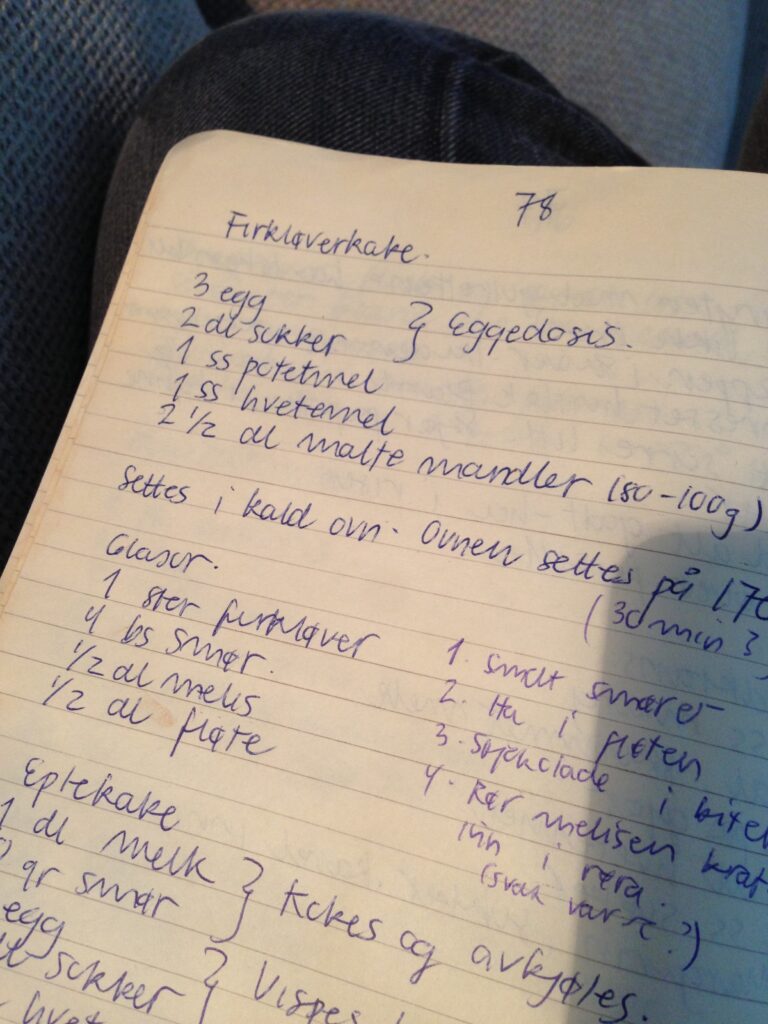 78
Firkløverkake.
3 egg
2 dl sukker } Eggedosis.
1 ss potetmel
1 ss hvetemel
2 1/2 dl malte mandler (80-100g)
Settes i kald ovn. Ovnen settes på 170
(30 min?)
Glasur.
1 stor firkløver
4 ss smør.
1/2 dl melis
1/2 dl fløte
1. Smelt smøret
2. Ha i fløten
3. Sjokolade i biter
4. Rør melisen kraf
inn i røra.
(svak varme?)
Eplekake
1 dl melk
gr smør } Kokes og avkjøles.
egg
sukker } Vispes
hvetem